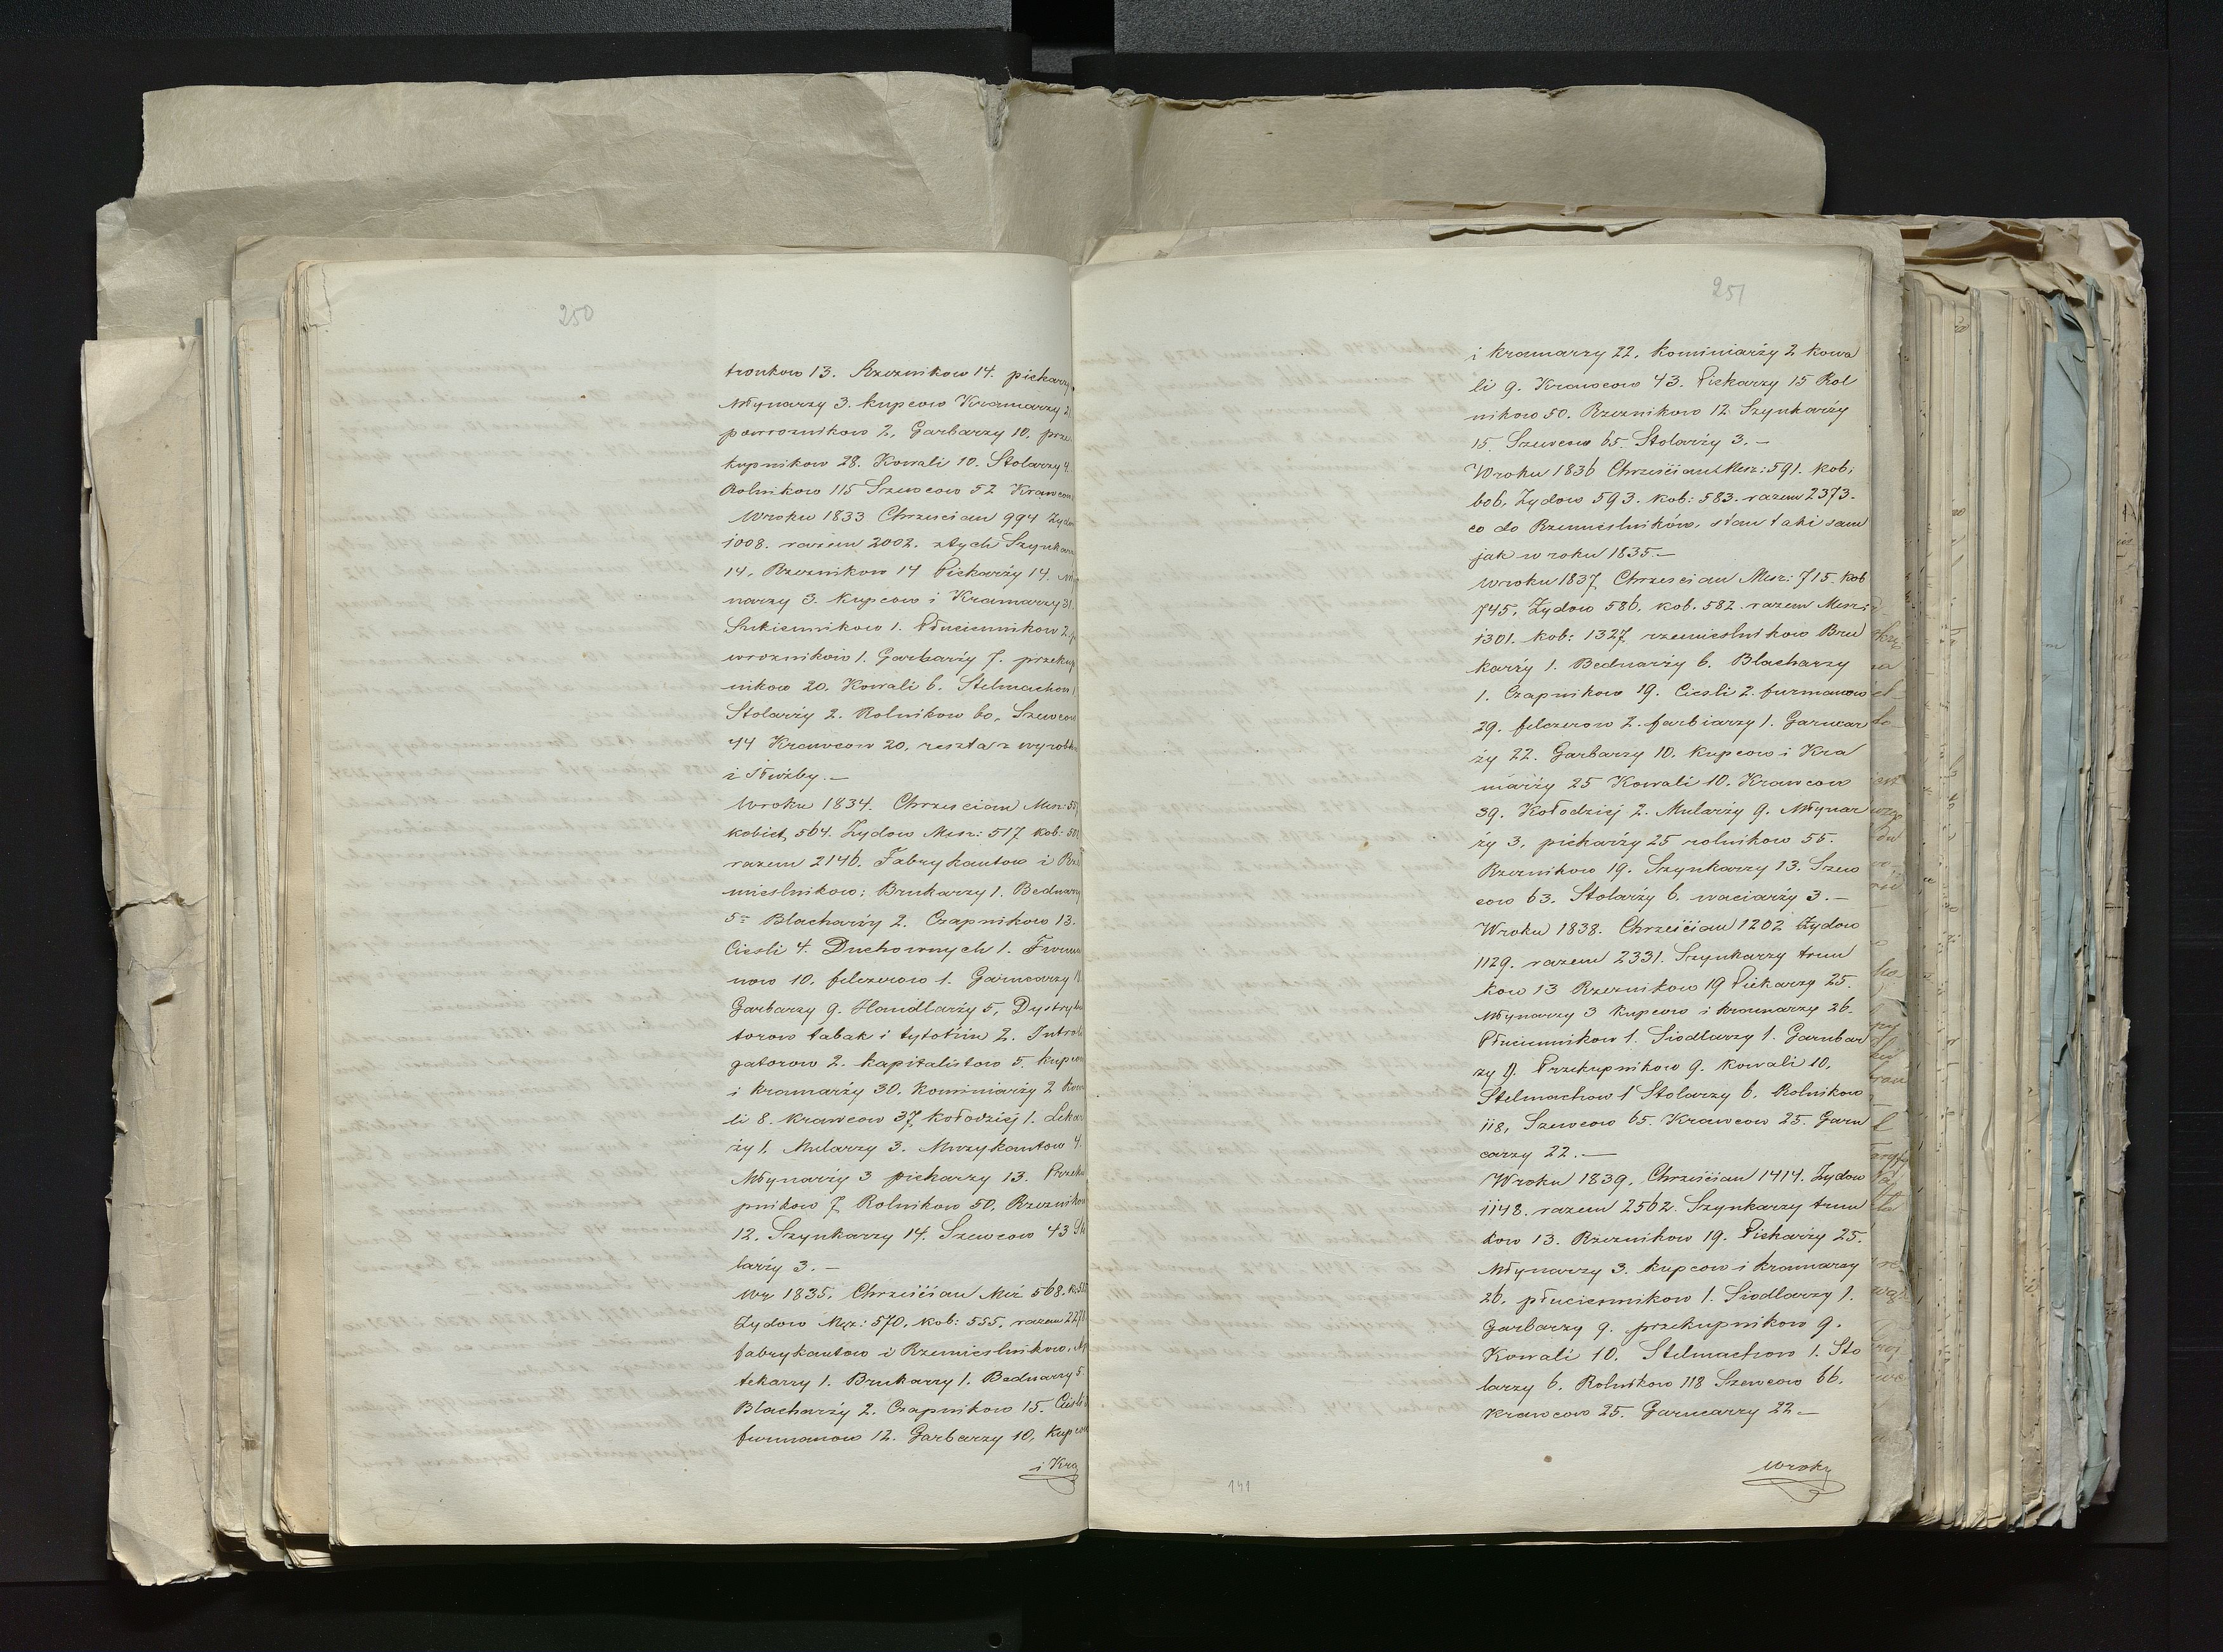 250
trunkow 13. Rzeznikow 14. piekarzy
Młynarzy 3. kupcow Kramarzy
powroznikow 2, Garbarzy 10, prze
kupnikow 28. Kowali 10. Stolarzy 4.
Rolnikow 115 Szewcow 52 Krawcow
Wroku 1833 Chrzescian 994 Zydow
1008. razem 2002. ztych Szynkar
14, Rzeznikow 14 Piekarży 14.
narzy 3. Kupcow i Kramarzy 31.
Sukiennikow 1. Płuciennikow 2
wroznikow 1. Garbarży 7. przekup
nikow 20. Kowali 6. Stelmachow
Stolarży 2. Rolnikow 60, Szewcow
44 Krawcow 20, reszta z wyrobku
i Służby.—
Wroku 1834. Chrzescian Męz:
kobiet, 564. Zydow Męz: 517 kob:
razem 2146. Fabrykantow i Rze
mieslnikow: Brukarzy 1. Bednarzy
5= Blacharży 2. Czapnikow 13.
Ciesli 4. Duchownych 1. Furma
now 10, felczerow 1. Garncarzy
Garbarzy 9. Handlarży 5, Dystrybu
torow tabak i tytoniu 2. Introli
gatorow 2. kapitalistow 5. kupcow
i kramarży 30. Kominiarży 2 kowa
li 8. krawcow 37, kołodziej 1. Lekar
ży 1, Mularzy 3. Muzykantow 4.
Młynarży 3 piekarzy 13. Przeku
pnikow 7, Rolnikow 50. Rzeznikow
12. Szynkarzy 14. Szewcow 43 Sto
larży 3.—
Wr 1835. Chrzesćian Męż 568.
Zydow Męz: 570, kob: 555, razem
fabrykantow i Rzemieslnikow, Ap
tekarzy 1. Brukarzy 1. Bednarzy 5.
Blacharży 2. Czapnikow 15. Ciesli
furmanow 12. Garbarzy 10, Kupcow
i Kra
251
i kramarzy 22, kominiarży 2 kowa
li 9. Krawcow 43. Piekarzy 15 Rol
nikow 50. Rzeznikow 12 Szynkarży
15 Szewcow 65. Stolarży 3.—
Wroku 1836 Chrzesćian Męz: 591. kob:
606, Zydow 593. kob: 583. razem 2373.
co do Rzemieslników, stan taki sam
jak w roku 1835.—
Wroku 1837, Chrzescian Męz: 715. kob
745, Zydow 586, kob. 582. razem Męz:
1301. kob: 1327, rzemieslnikow Bru
karży 1. Bednarży 6. Blacharzy
1. Czapnikow 19. Ciesli 2. furmanow
29. felczerow 2. farbiarzy 1. Garncar
ży 22. Garbarzy 10. Kupcow i Kra
marży 25 Kowali 10. Krawcow
39. Kołodziej 2. Mularży 9. Młynar
ży 3, piekarży 25 rolnikow 55.
Rzeznikow 19. Szynkarzy 13. Szew
cow 63. Stolarży 6, waciarży 3.—
Wroku 1838. Chrześćian 1202 Zydow
1129. razem 2331. Szynkarzy trun
kow 13 Rzeznikow 19 Piekarzy 25.
Młynarzy 3 Kupcow i kramarzy 26.
Płuciennikow 1. Siodlarzy 1. Garnbar
zy 9. Przekupnikow 9. Kowali 10,
Stelmachow 1 Stolarzy 6. Rolnikow
118, Szewcow 65. Krawcow 25. Garn
carzy 22.—
Wroku 1839, Chrzésćian 1414. Zydow
1148. razem 2562. Szynkarzy trun
kow 13. Rzeznikow 19. Piekarży 25.
Młynarzy 3. kupcow i kramarzy
26, płuciennikow 1. Siodlarzy 1.
Garbarzy 9. przekupnikow 9.
Kowali 10. Stelmachow 1. Sto
larzy 6. Rolnikow 118 Szewcow 66.
Krawcow 25. Garncarzy 22—
Wroku
141